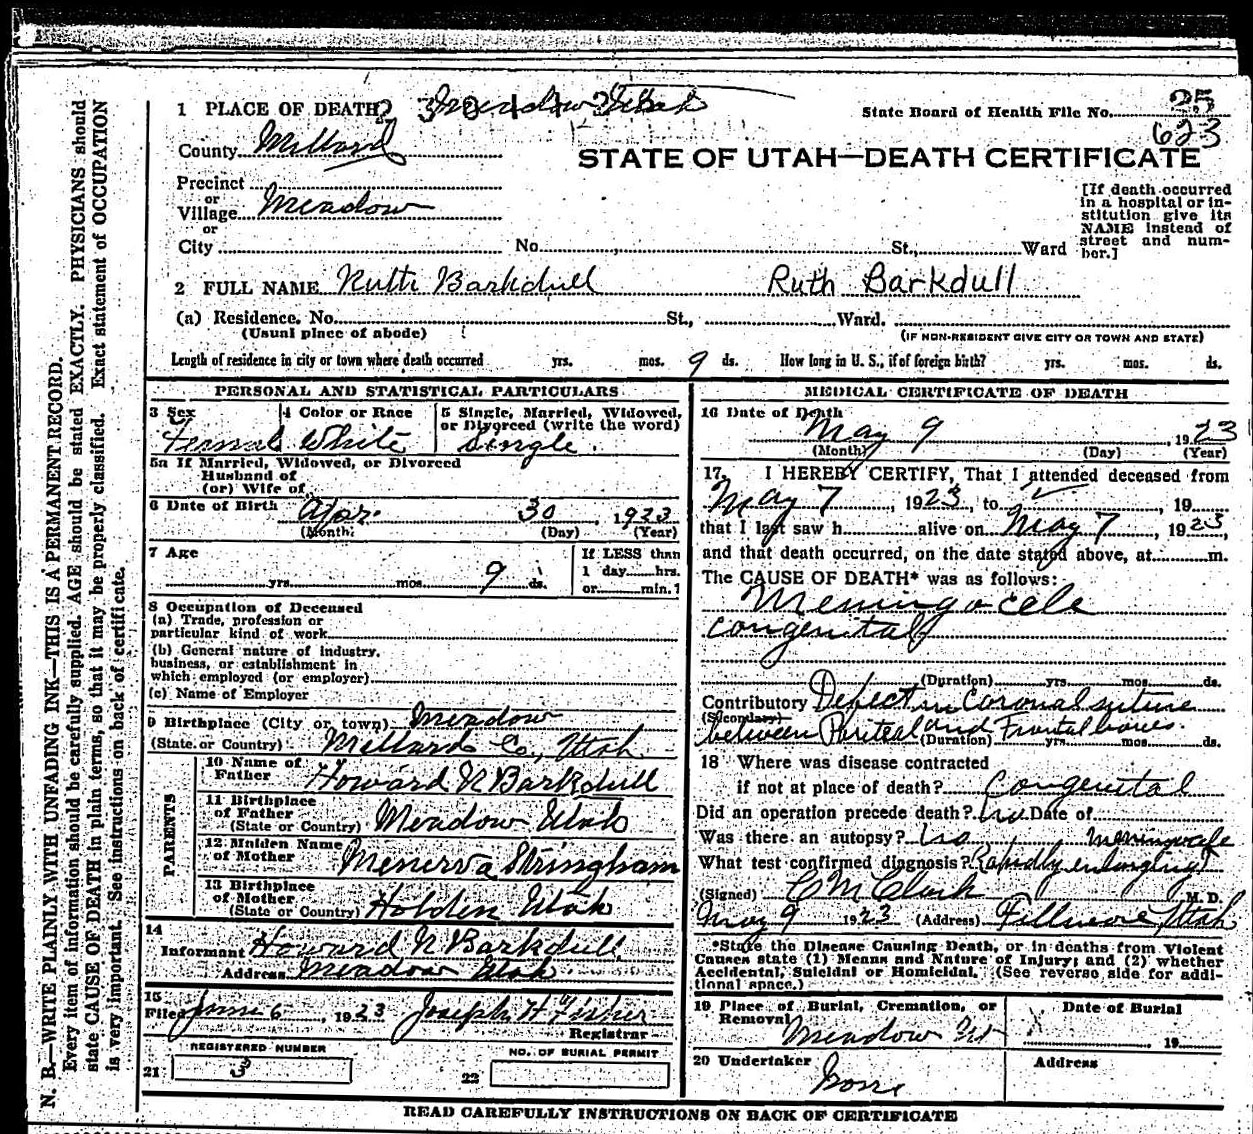 1 PLACE OF DEATH Meadow Utah
State Board of Health File No. 25
623
County Millard
STATE OF UTAH—DEATH CERTIFICATE
Precinct
or
Village Meadow
or
City No. St., Ward
[If death occurred
in a hospital or in-
stitution give its
NAME instead of
street and num-
ber.]
2 FULL NAME Ruth Barkdull Ruth Barkdull
(a) Residence. No. St., Ward.
(Usual place of abode) (IF NON-RESIDENT GIVE CITY OR TOWN AND STATE)
Length of residence in city or town where death occurred yrs. mos. 9 ds. How long in U. S., if of foreign birth? yrs. mos. ds.
PERSONAL AND STATISTICAL PARTICULARS
3 Sex 4 Color or Race 5 Single, Married, Widowed,
or Divorced (write the word)
Female White Single
5a If Married, Widowed, or Divorced
Husband of
(or) Wife of
6 Date of Birth Apr. 30, 1923
(Month) (Day) (Year)
7 Age If LESS than
1 day hrs.
yrs. mos. 9 ds. or min.?
8 Occupation of Deceased
(a) Trade, profession or
particular kind of work
(b) General nature of industry,
business, or establishment in
which employed (or employer)
(c) Name of Employer
9 Birthplace (City or town) Meadow
(State or Country) Millard Co., Utah
PARENTS
10 Name of
Father Howard N Barkdull
11 Birthplace
of Father
(State or Country) Meadow Utah
12 Maiden Name
of Mother Menerva Stringham
13 Birthplace
of Mother
(State or Country) Holden Utah
14
Informant Howard N Barkdull
Address Meadow Utah
15
Filed June 6, 1923 Joseph H Fisher
Registrar
REGISTERED NUMBER
21 3
NO. OF BURIAL PERMIT
22
MEDICAL CERTIFICATE OF DEATH
16 Date of Death
May 9, 1923
(Month) (Day) (Year)
17. I HEREBY CERTIFY, That I attended deceased from
May 7, 1923, to , 19
that I last saw h alive on May 7, 1923,
and that death occurred, on the date stated above, at m.
The CAUSE OF DEATH* was as follows:
Meningocele
congenital
(Duration) yrs. mos. ds.
Contributory Defect in Coronal suture
(Secondary) between Parieteal and Frontal bones
(Duration) yrs. mos. ds.
18 Where was disease contracted
if not at place of death? Congenital
Did an operation precede death? no Date of
Was there an autopsy? no meningocele
What test confirmed diagnosis? Rapidly enlarging
(Signed) C M Clark M. D.
May 9 1923 (Address) Fillmore Utah
*State the Disease Causing Death, or in deaths from Violent
Causes state (1) Means and Nature of Injury; and (2) whether
Accidental, Suicidal or Homicidal. (See reverse side for addi-
tional space.)
19 Place of Burial, Cremation, or
Removal Date of Burial
Meadow , 19
20 Undertaker Address
None
READ CAREFULLY INSTRUCTIONS ON BACK OF CERTIFICATE
N. B.—WRITE PLAINLY WITH UNFADING INK—THIS IS A PERMANENT RECORD.
Every item of information should be carefully supplied. AGE should be stated EXACTLY. PHYSICIANS should
state CAUSE OF DEATH in plain terms, so that it may be properly classified. Exact statement of OCCUPATION
is very important. See instructions on back of certificate.